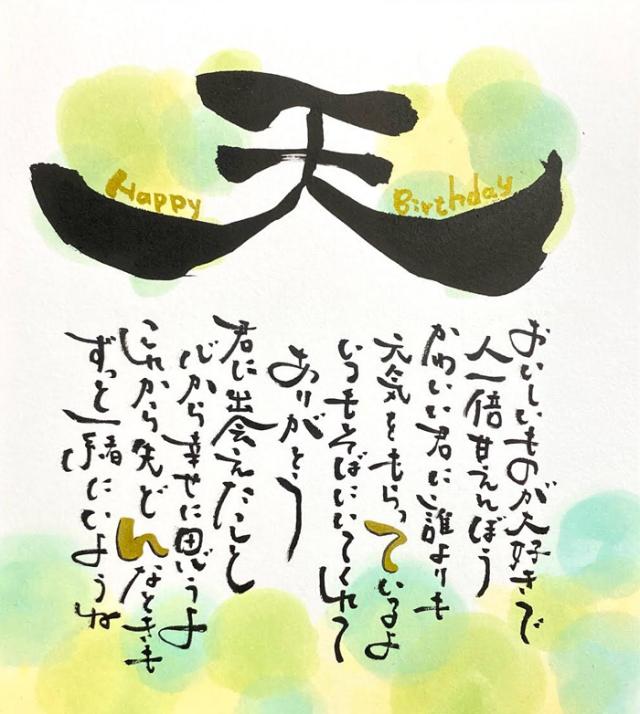 天
Happy Birthday
おいしいものが大好きで
人一倍甘えんぼう
かわいい君に誰よりも
元気をもらっているよ
いつもそばにいてくれて
ありがとう
君に出会えたこと
心から幸せに思うよ
これから先どんなときも
ずっと一緒にいようね